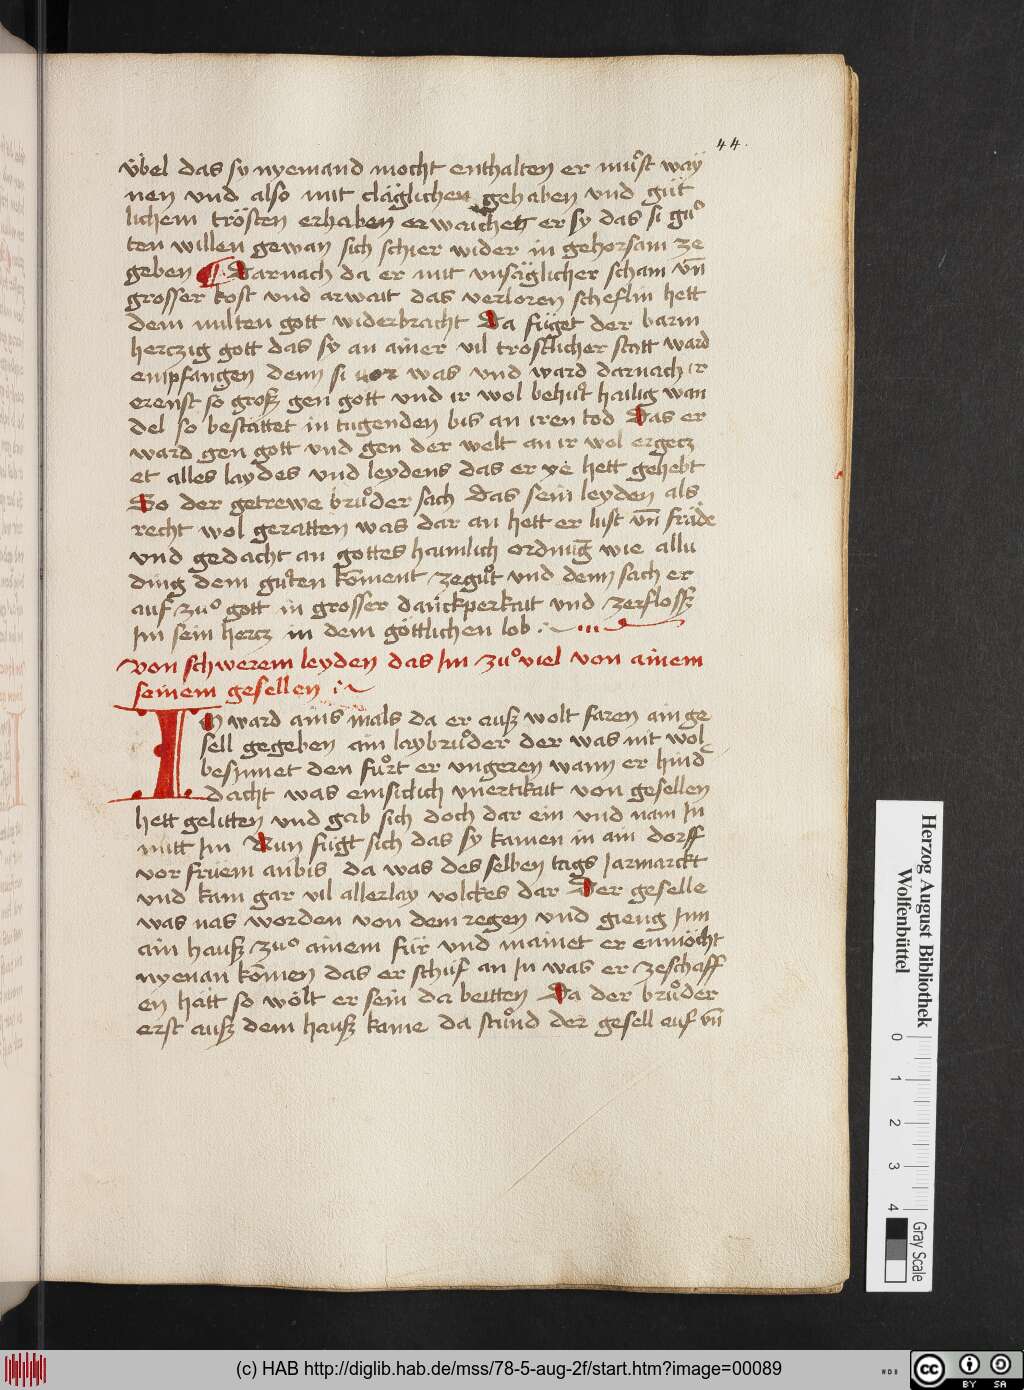 44.
übel das sy nyemand mocht enthalten er muͦst way
nen vnd also mit cläglichen gehaben vnd güt
lichem trösten erhaben erwaichett er sy das si guͦ
ten willen gewan sich schier wider in gehorsam ze
geben ¶ Darnach da er mit vnsäglicher scham vn̄
grosser kost vnd arwait das verloren scheflin hett
dem milten gott widerbracht Da füget der barm
herczig gott das sy an ainer vil trostlicher statt ward
empfangen denn si vor was vnd ward darnach ir
erenst so groß gen gott vnd ir wol behuͦt hailig wan
del so bestättet in tugenden bis an iren tod Das er
ward gen gott vnd gen der welt an ir wol ergecz
et alles laydes vnd leydens das er ye hett gehebt
Do der getrewe bruͦder sach das sein leyden als
recht wol geratten was dar an hett er lust vn̄ fräde
vnd gedacht an gottes haimlich ordnūg wie allu
ding dem guͦten kōment zeguͦt vnd denn sach er
auf zuͦ gott in grosser danckperkait vnd zerflosß
Im sein hercz in dem göttlichen lob
Von schwerem leyden das Im zuͦ viel von ainem
seinem gesellen
Im ward ains mals da er auß wolt faren ain ge
sell gegeben ain laybruͦder der was nit wol
besinnet den fuͦrt er vngeren wann er hind
dacht was emsiclich vnertikait von gesellen
hett gelitten vnd gab sich doch dar ein vnd nam In
mitt Im Nun fügt sich das sy kamen in ain dorff
vor früem anbis da was des selben tags Jarmarckt
vnd kam gar vil allerlay volckes dar Der geselle
was nas worden von dem regen vnd gieng Inn
ain hauß zuͦ ainem für vnd mainet er enmöcht
nyenan kōmen das er schüf an In was er zeschaff
en hätt so wölt er sein da beitten Da der bruͦder
erst auß dem hauß kame da stuͦnd der gesell auf vn̄
Herzog August Bibliothek
Wolfenbüttel
0
1
2
3
4
Gray Scale
(c) HAB http://diglib.hab.de/mss/78-5-aug-2f/start.htm?image=00089
WDB
cc BY SA